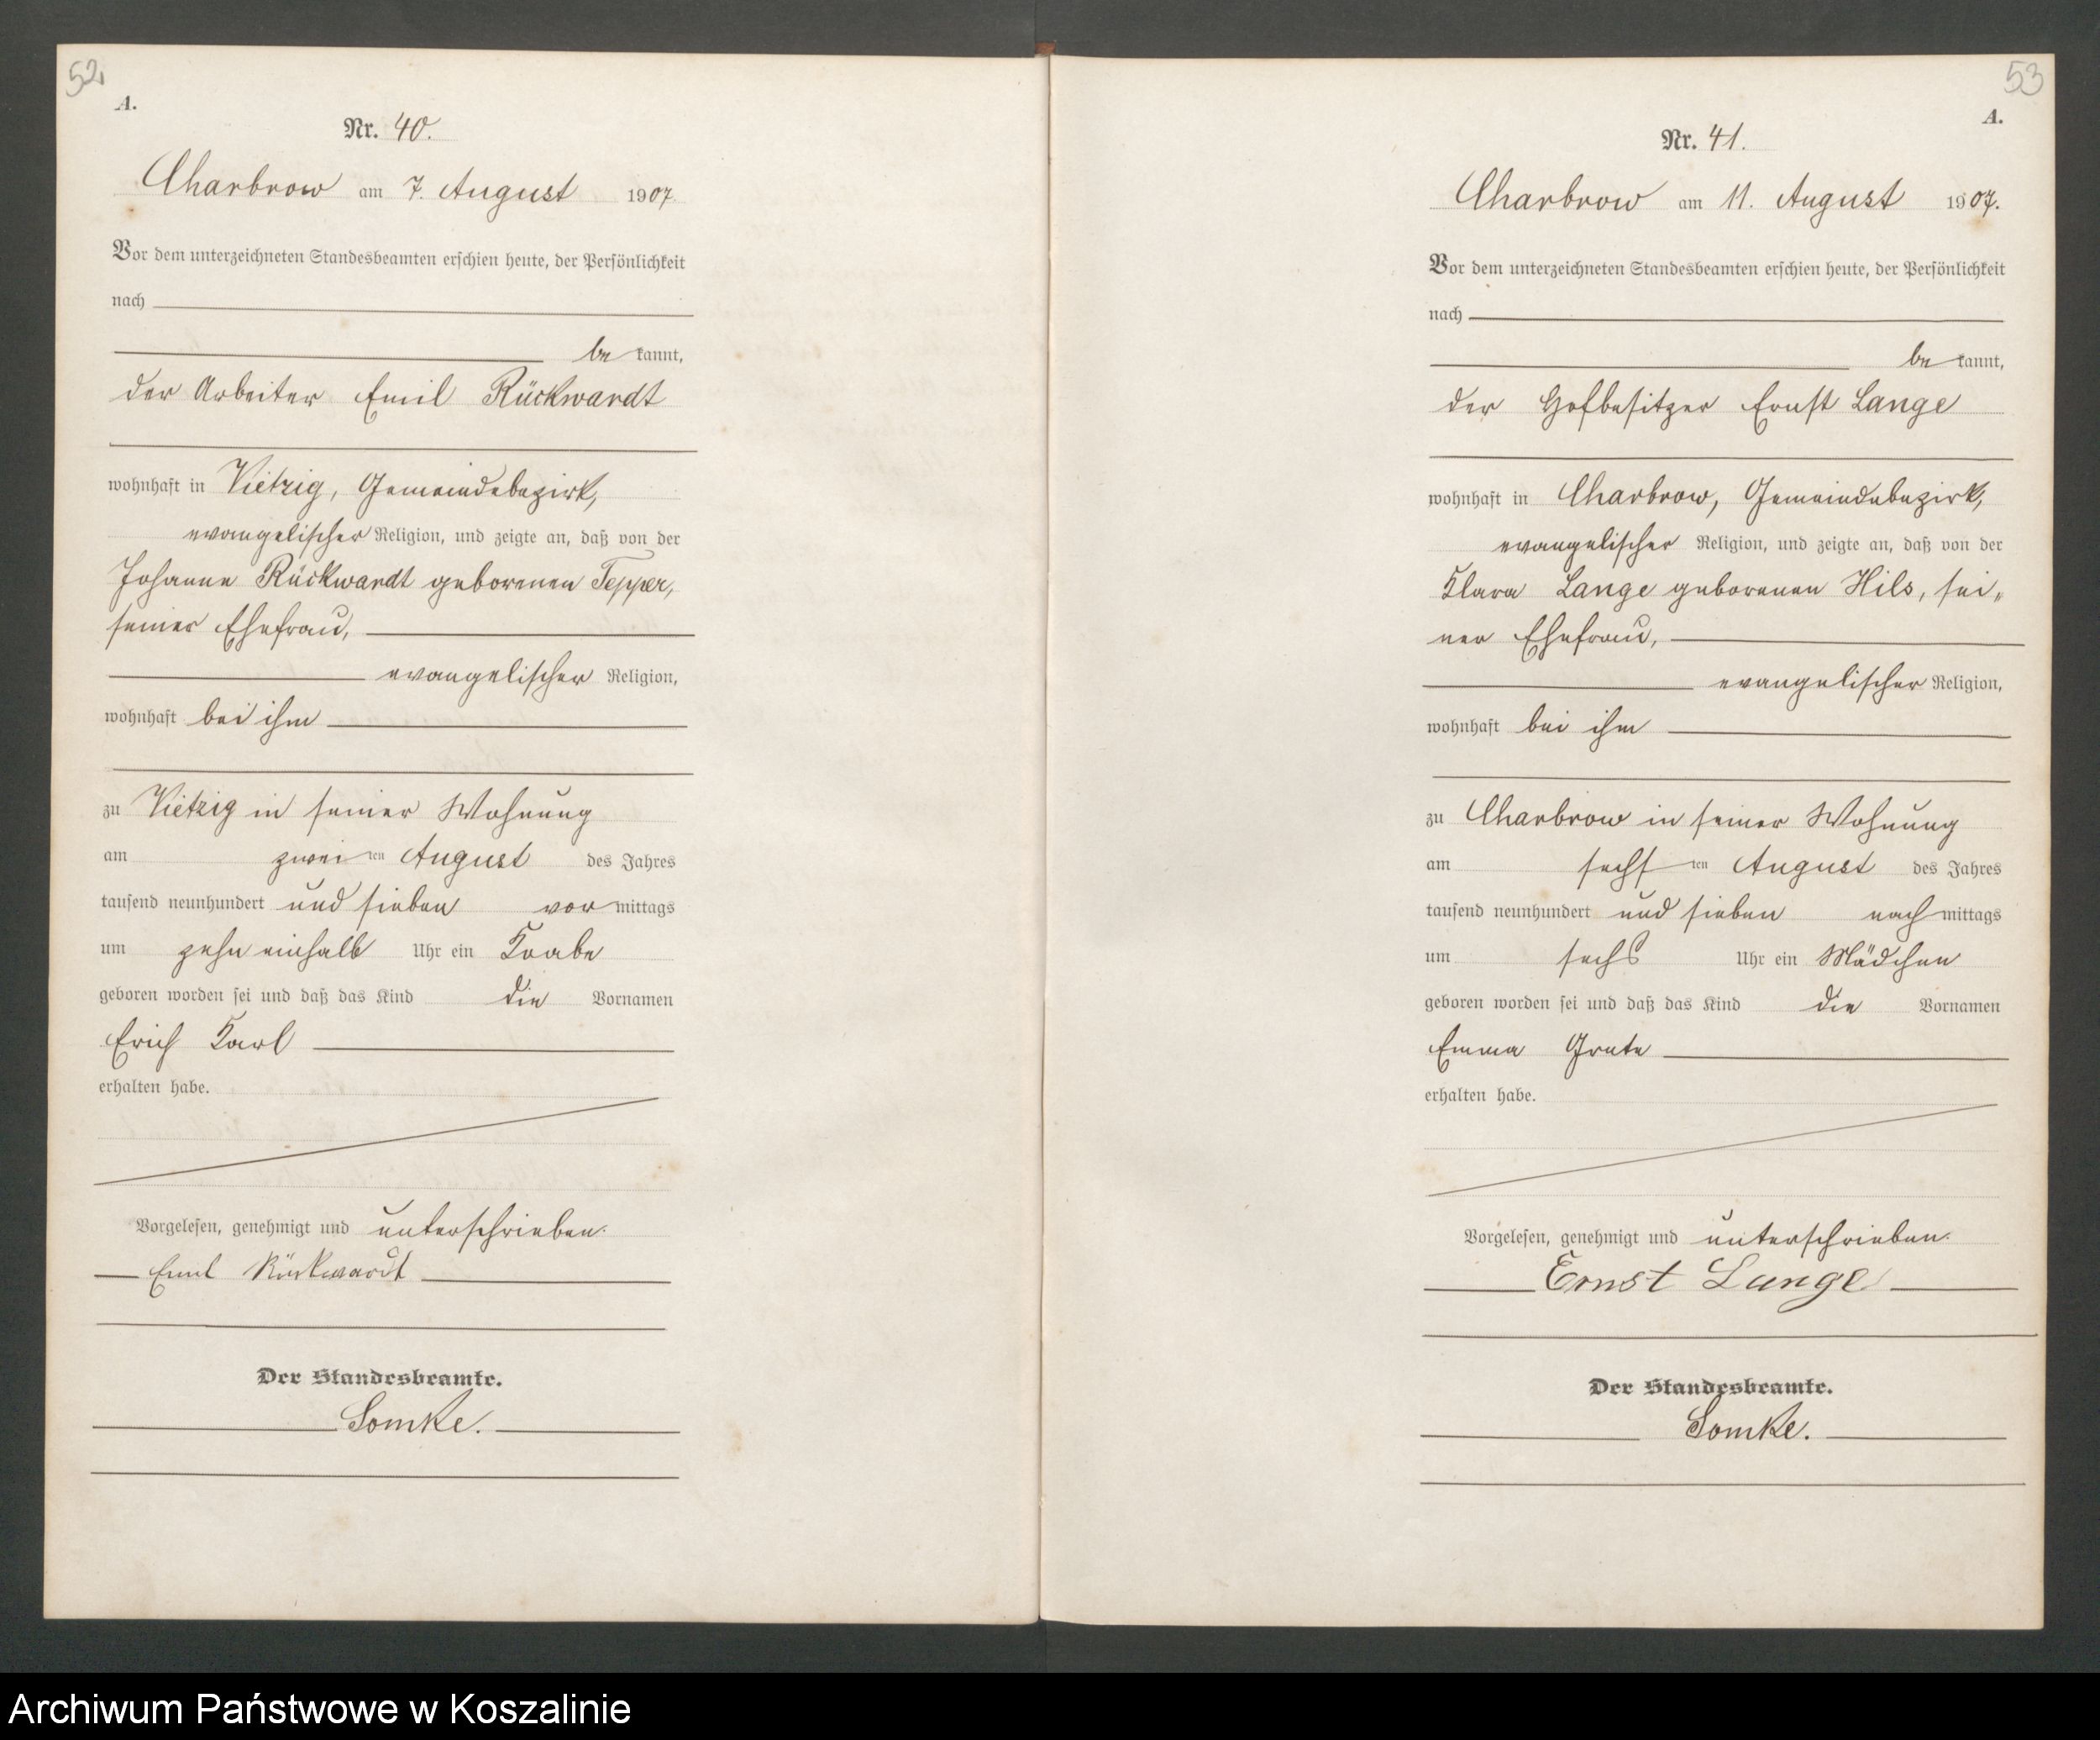 52
A.
Nr. 40.
Charbrow am 7. August 1907.
Vor dem unterzeichneten Standesbeamten erschien heute, der Persönlichkeit
nach
be kannt,
der Arbeiter Emil Rückwardt
wohnhaft in Vietzig, Gemeindebezirk,
evangelischer Religion, und zeigte an, daß von der
Johanne Rückwardt geborenen Tepper,
seiner Ehefrau,
evangelischer Religion,
wohnhaft bei ihm
zu Vietzig in seiner Wohnung
am zweiten August des Jahres
tausend neunhundert und sieben vormittags
um zehn einhalb Uhr ein Knabe
geboren worden sei und daß das Kind die Vornamen
Erich Karl
erhalten habe.
Vorgelesen, genehmigt und unterschrieben.
Emil Rückwardt
Der Standesbeamte.
Somke.
53
A.
Nr. 41.
Charbrow am 11. August 1907.
Vor dem unterzeichneten Standesbeamten erschien heute, der Persönlichkeit
nach
be kannt,
der Hofbesitzer Ernst Lange
wohnhaft in Charbrow, Gemeindebezirk,
evangelischer Religion, und zeigte an, daß von der
Klara Lange geborenen Hils, sei„
ner Ehefrau,
evangelischer Religion,
wohnhaft bei ihm
zu Charbrow in seiner Wohnung
am sechsten August des Jahres
tausend neunhundert und sieben nachmittags
um sechs Uhr ein Mädchen
geboren worden sei und daß das Kind die Vornamen
Emma Grete
erhalten habe.
Vorgelesen, genehmigt und unterschrieben.
Ernst Lange
Der Standesbeamte.
Somke.
Archiwum Państwowe w Koszalinie